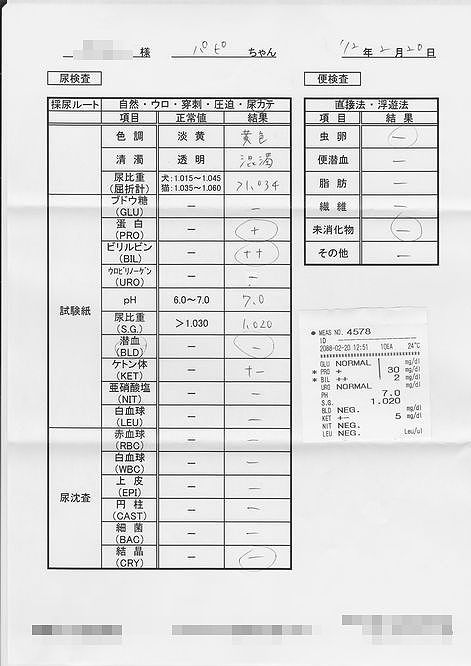 様 パピ ちゃん '12年 2月 20日
尿検査
採尿ルート 自然・ウロ・穿刺・圧迫・尿カテ
項目 正常値 結果
色調 淡黄 黄色
清濁 透明 混濁
尿比重 (屈折計) 犬:1.015~1.045 猫:1.035~1.060 >1.034
試験紙
ブドウ糖 (GLU) − −
蛋白 (PRO) − +
ビリルビン (BIL) − ++
ウロビリノーゲン (URO) − −
pH 6.0~7.0 7.0
尿比重 (S.G.) >1.030 1.020
潜血 (BLD) − −
ケトン体 (KET) − +-
亜硝酸塩 (NIT) − −
白血球 (LEU) − −
尿沈査
赤血球 (RBC) − −
白血球 (WBC) − −
上皮 (EPI) − −
円柱 (CAST) − −
細菌 (BAC) − −
結晶 (CRY) − −
便検査
直接法・浮遊法
項目 結果
虫卵 −
便潜血 −
脂肪 −
繊維 −
未消化物 −
その他 −
* MEAS NO. 4578
ID
2088-02-20 12:51 10EA 24℃
GLU NORMAL mg/dl
* PRO + 30 mg/dl
* BIL ++ 2 mg/dl
URO NORMAL mg/dl
PH 7.0
S.G. 1.020
BLD NEG. mg/dl
KET +- 5 mg/dl
NIT NEG.
LEU NEG. Leu/ul